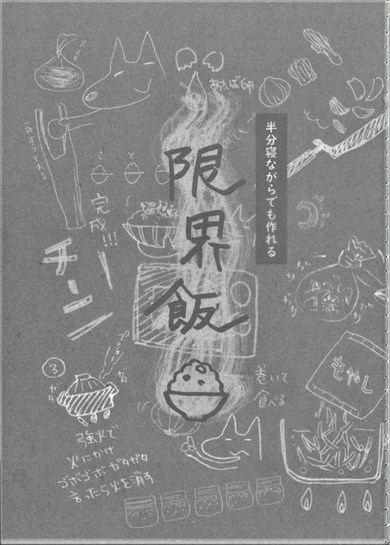 半分寝ながらでも作れる
限界飯
あれば卵
完成!!!
チーン
もやし
巻いて
食べる
③
強火で
火にかけ
ゴボゴボ ガタガタ
言ったら火を消す